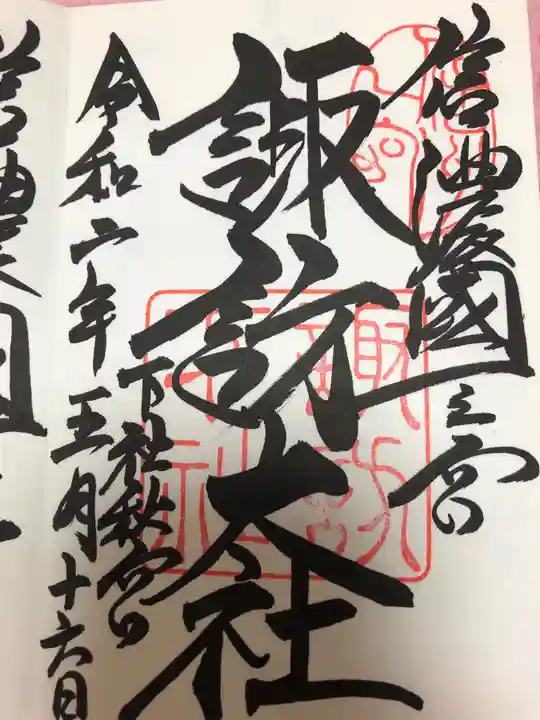 信濃國一之宮
諏訪大社
下社秋宮
令和六年五月十六日